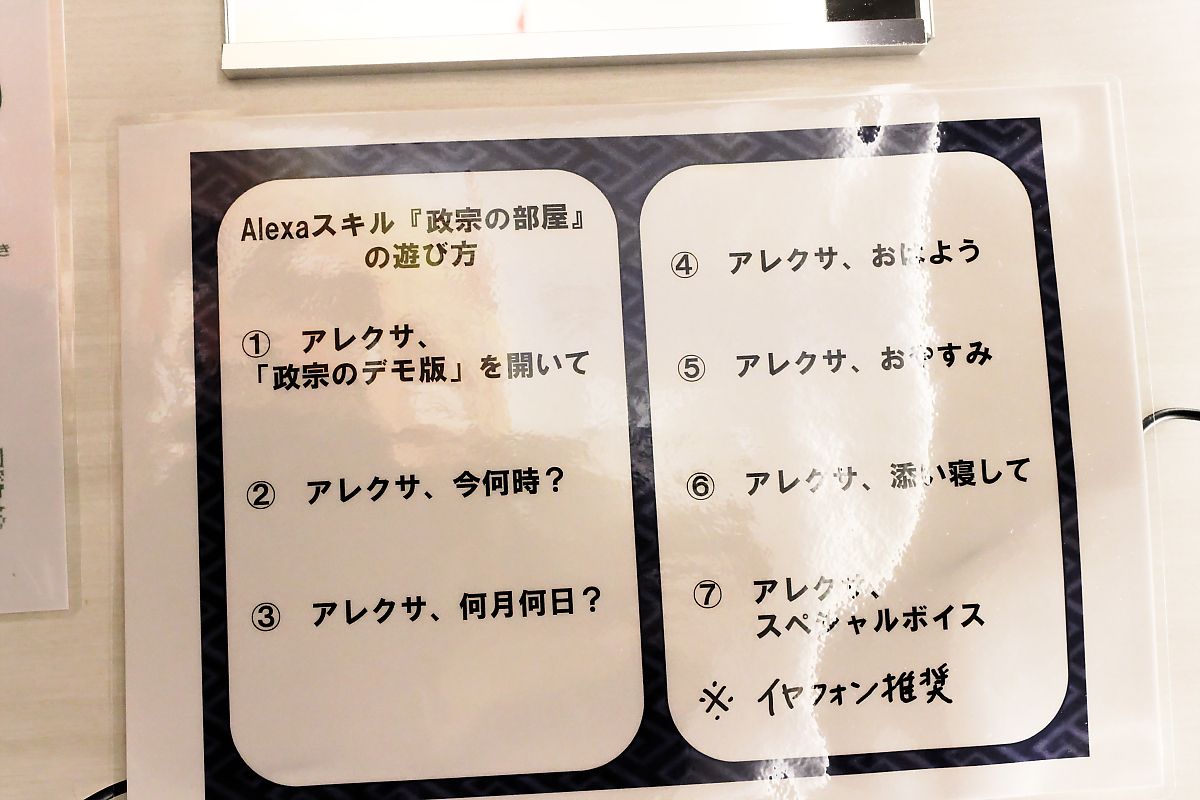 Alexaスキル『政宗の部屋』
の遊び方
① アレクサ、
「政宗のデモ版」を開いて
② アレクサ、今何時？
③ アレクサ、何月何日？
④ アレクサ、おはよう
⑤ アレクサ、おやすみ
⑥ アレクサ、添い寝して
⑦ アレクサ、
スペシャルボイス
※ イヤフォン推奨